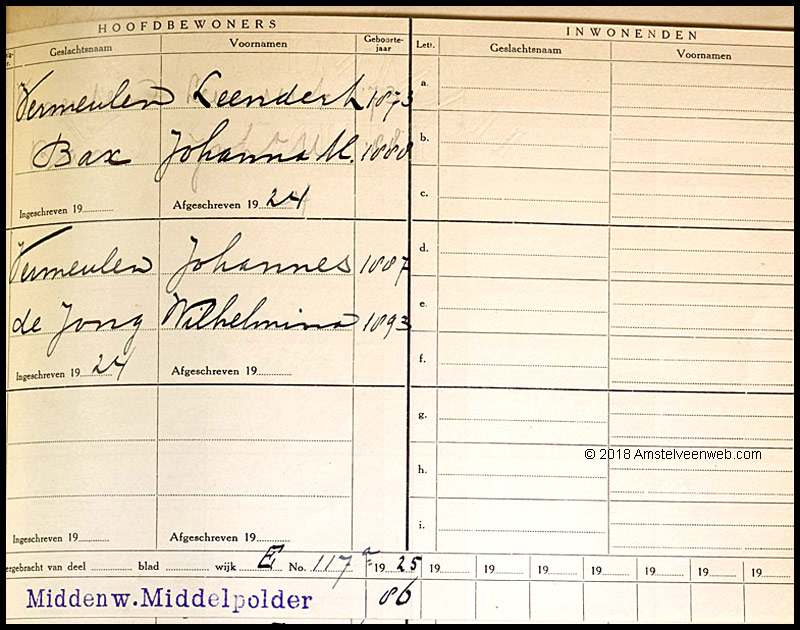 HOOFDBEWONERS
INWONENDEN
Geslachtsnaam Voornamen Geboorte-jaar Lett. Geslachtsnaam Voornamen
Vermeulen Leendert 1873 a.
Bax Johanna M. 1888 b.
Ingeschreven 19 Afgeschreven 1924 c.
Vermeulen Johannes 1887 d.
de Jong Wilhelmina 1893 e.
Ingeschreven 1924 Afgeschreven 19 f.
g.
© 2018 Amstelveenweb.com
h.
Ingeschreven 19 Afgeschreven 19 i.
ergebracht van deel blad wijk E No. 117 a 1925 19 19 19 19 19 19 19
Middenw. Middelpolder 86